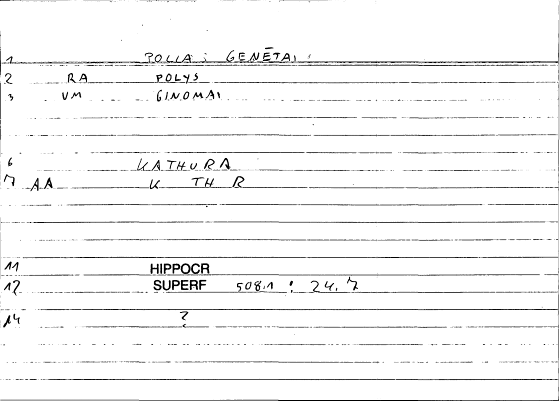 1 POLLA; GENĒTAI;
2 RA POLYS
3 VM GINOMAI
6 KATHURA
7 AA K TH R
11 HIPPOCR
12 SUPERF 508.1 : 24.7
14 ?